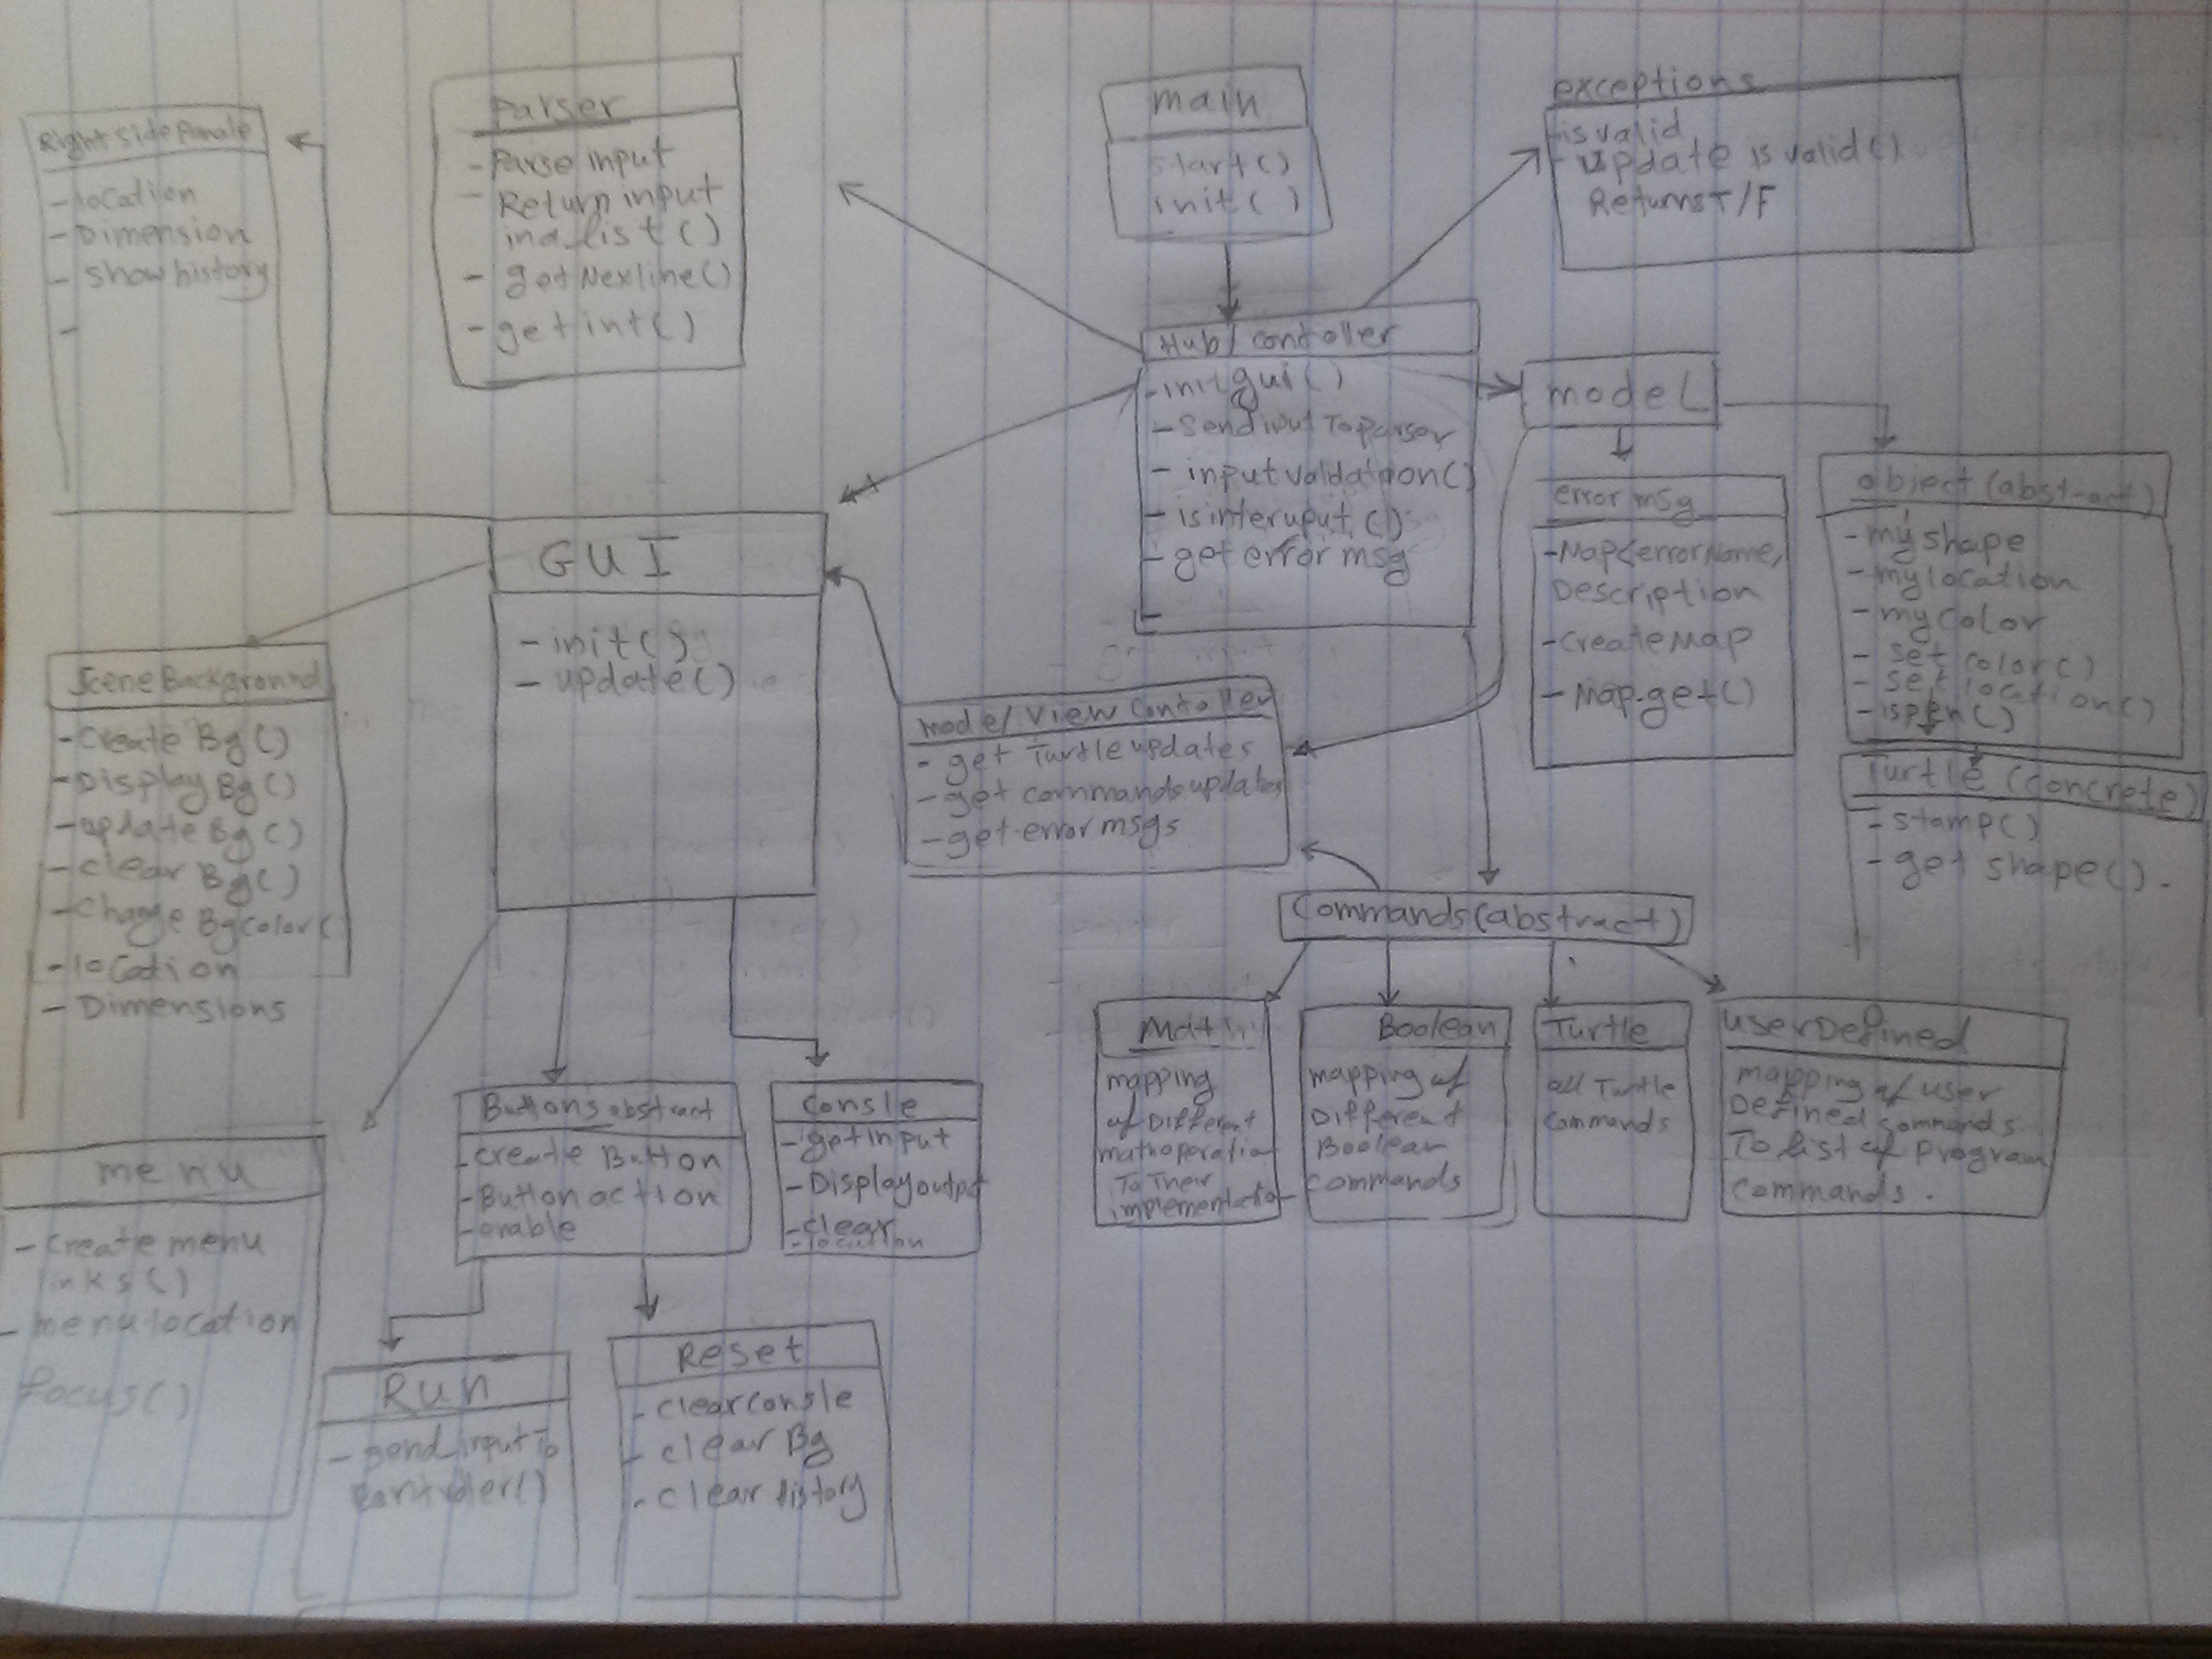 Right side Panale
- location
- Dimension
- show history
-
Parser
- Parse input
- Return input
in a list ()
- get Nexline()
- get int()
main
start()
init()
exceptions
- is valid
- update is valid()
Returns T/F
Hub/ contoller
- init gui()
- Send input To Parser
- input valdation()
- is interuput ()
- get error msg
-
model
error msg
- Map<errorName,
Description
- Create Map
- Map.get()
object (abstract)
- my shape
- my location
- my color
- set color()
- set location()
- ispen()
Turtle (concrete)
- stamp()
- get shape().
GUI
- init()
- update()
Scene Background
- Create Bg()
- Display Bg()
- update Bg()
- clear Bg()
- Change Bg Color(
- location
- Dimensions
Model View Controller
- get Turtle updates
- get commands updates
- get error msgs
Commands (abstract)
Math
mapping
of Different
math operation
To Their
implementation
Boolean
mapping of
Different
Boolean
commands
Turtle
all Turtle
commands
User Defined
mapping of user
Defined commands
To list of program
commands.
menu
- Create menu
links()
- menu location
focus()
Buttons abstract
- create Button
- Button action
- enable
Consle
- get input
- Display output
- clear
- location
Run
- send input To
controler()
Reset
- clear Consle
- clear Bg
- clear history